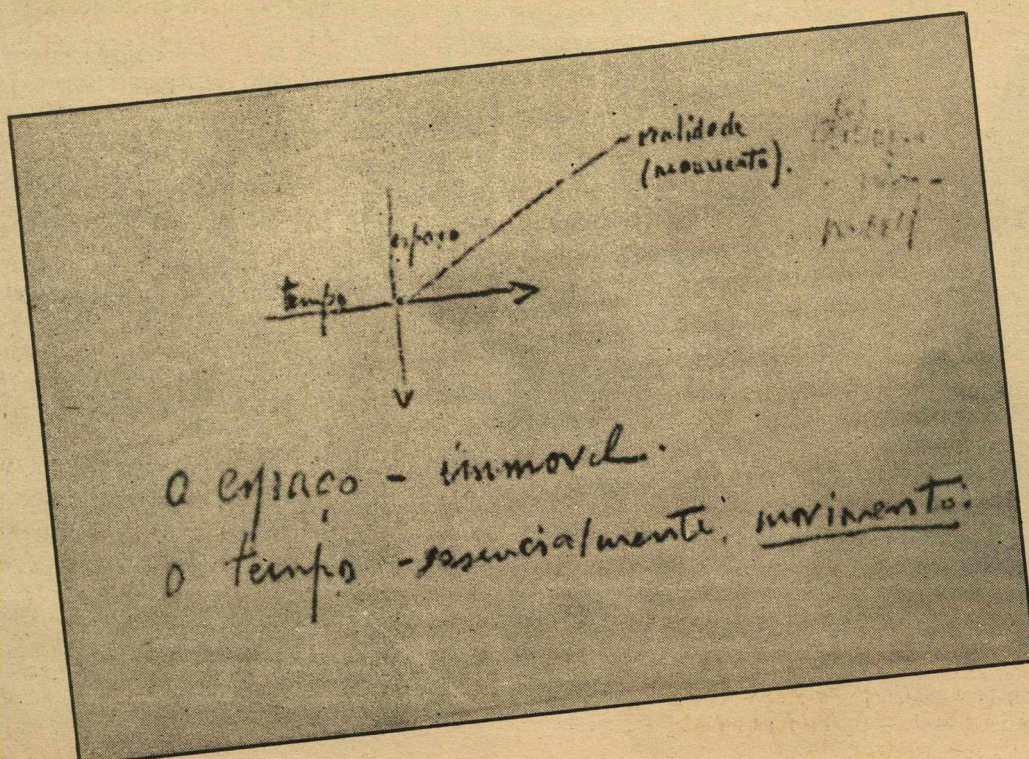 realidade
(movimento).
espaço
tempo
O espaço - immovel.
O tempo - essencialmente, movimento.